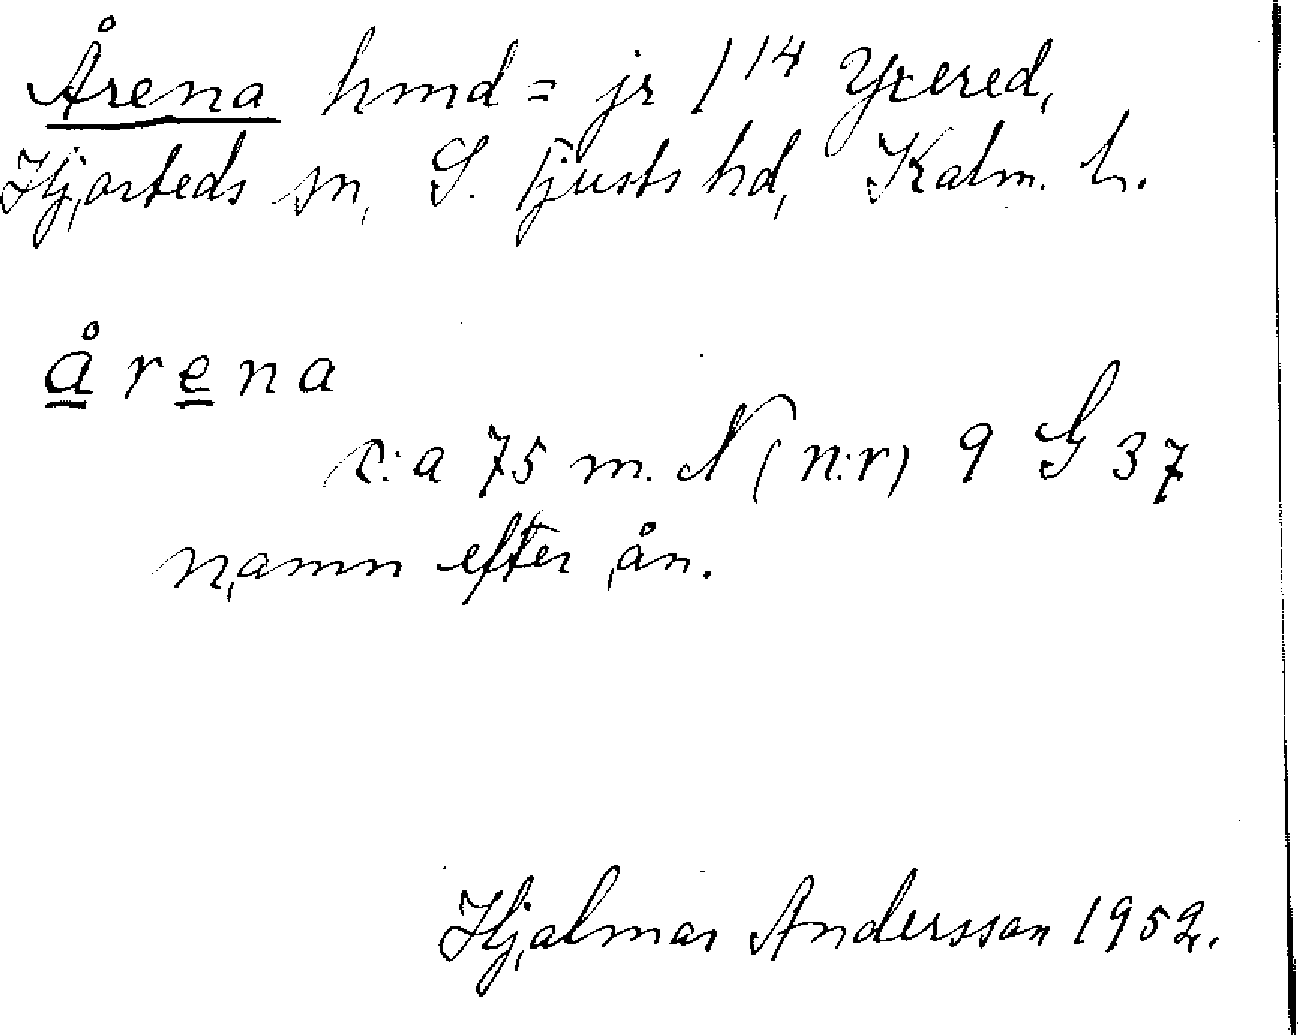 Årena hmd = jr 1 14 Yxered,
Hjorteds sn, S. Tjusts hd, Kalm. L.
årena
c:a 75 m. N (n:r) 9 G 37
namn efter ån.
Hjalmar Andersson 1952.